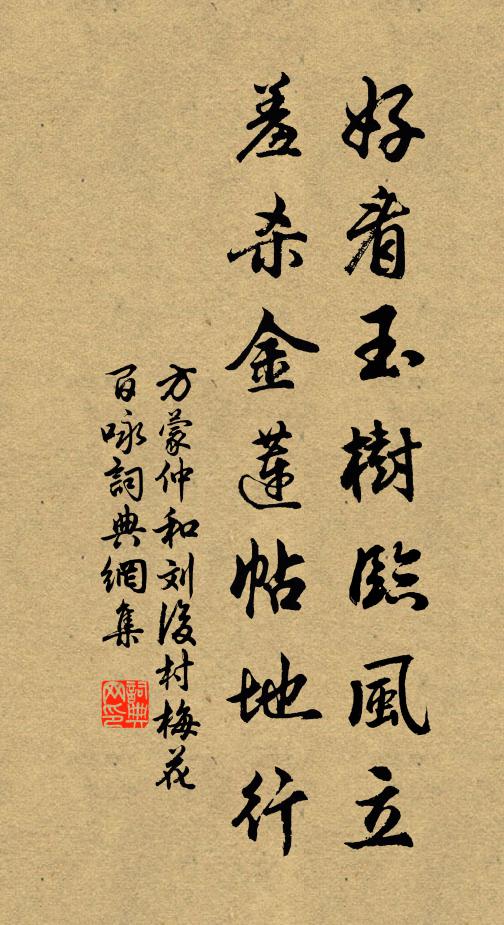 好看玉樹臨風立
羞杀金蓮帖地行
方蒙仲和刘後村梅花
百咏詞典網集
詞典网印